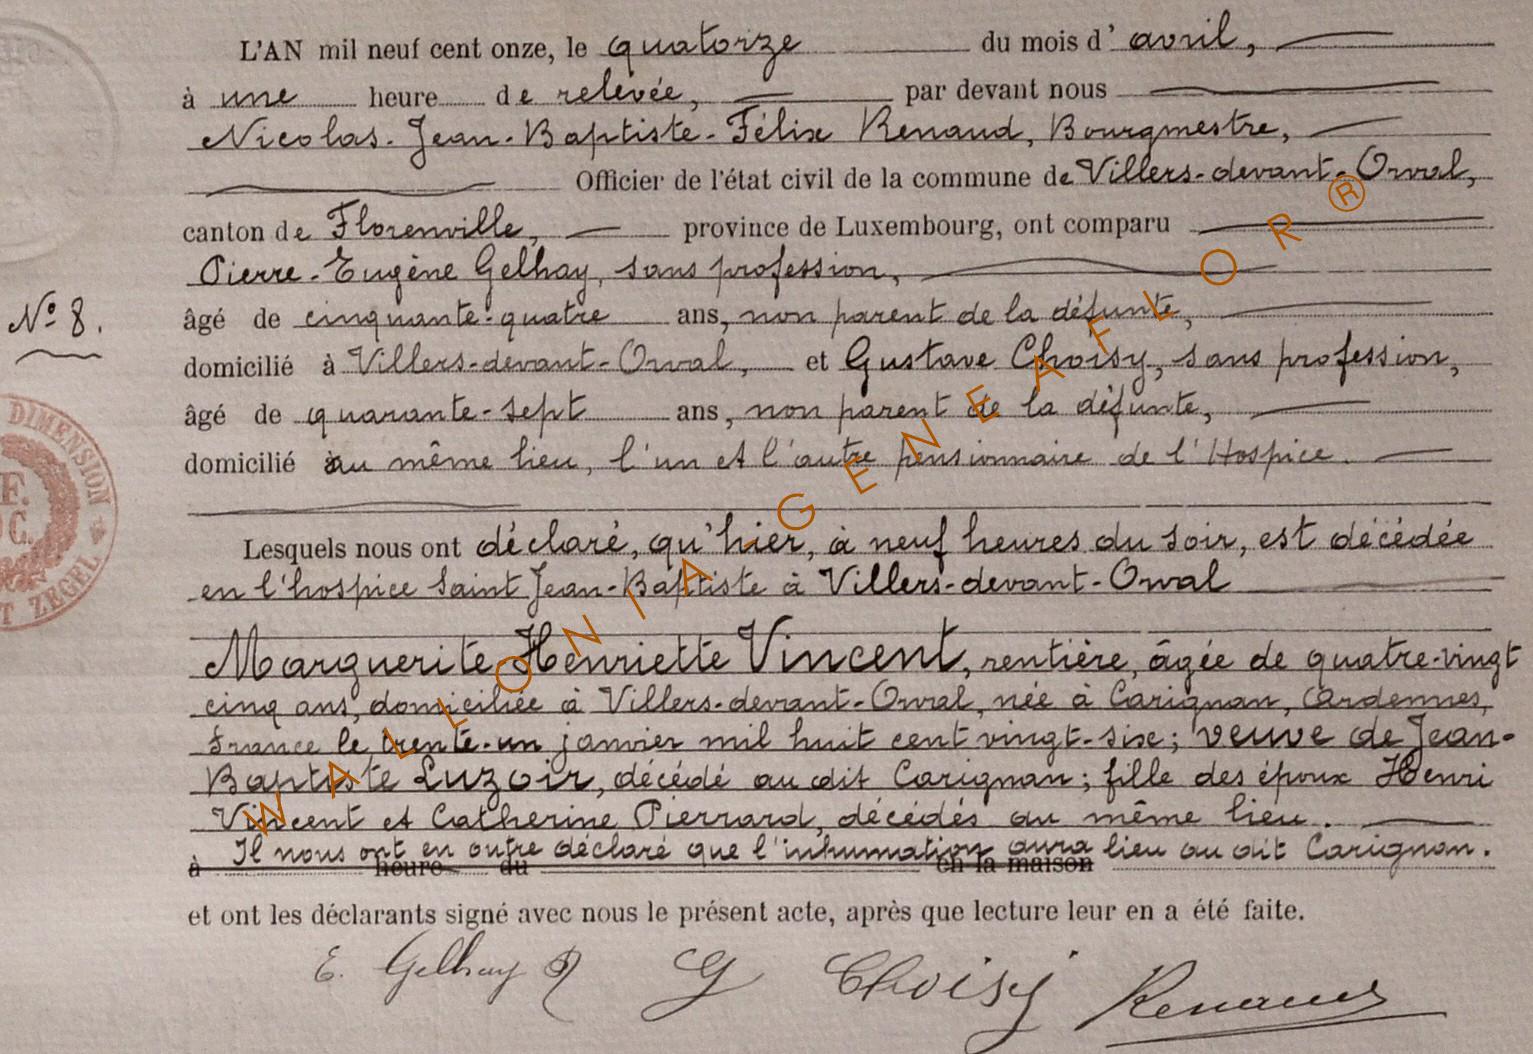 L'AN mil neuf cent onze, le quatorze du mois d' avril,
à une heure de relevée, par devant nous
Nicolas-Jean-Baptiste-Félix Renaud, Bourgmestre,
Officier de l'état civil de la commune de Villers-devant-Orval,
canton de Florenville, province de Luxembourg, ont comparu
Pierre-Eugène Gelhay, sans profession,
N° 8.
âgé de cinquante-quatre ans, non parent de la défunte,
domicilié à Villers-devant-Orval, et Gustave Choisy, sans profession,
âgé de quarante-sept ans, non parent de la défunte,
domicilié au même lieu, l'un et l'autre pensionnaire de l'Hospice.
DIMENSION
F.
C.
T ZEGEL
Lesquels nous ont déclaré, qu'hier, à neuf heures du soir, est décédée
en l'hospice Saint Jean-Baptiste à Villers-devant-Orval
Marguerite Henriette Vincent, rentière, âgée de quatre-vingt
cinq ans, domiciliée à Villers-devant-Orval, née à Carignan, Ardennes,
France le trente-un janvier mil huit cent vingt-six; veuve de Jean-
Baptiste Luzoir, décédé au dit Carignan; fille des époux Henri
Vincent et Catherine Pierrard, décédés au même lieu.
Il nous ont en outre déclaré que l'inhumation aura lieu au dit Carignan.
à heure du en la maison
et ont les déclarants signé avec nous le présent acte, après que lecture leur en a été faite.
E. Gelhay G Choisy Renaud
WALLONIA-GENEAFLOR®